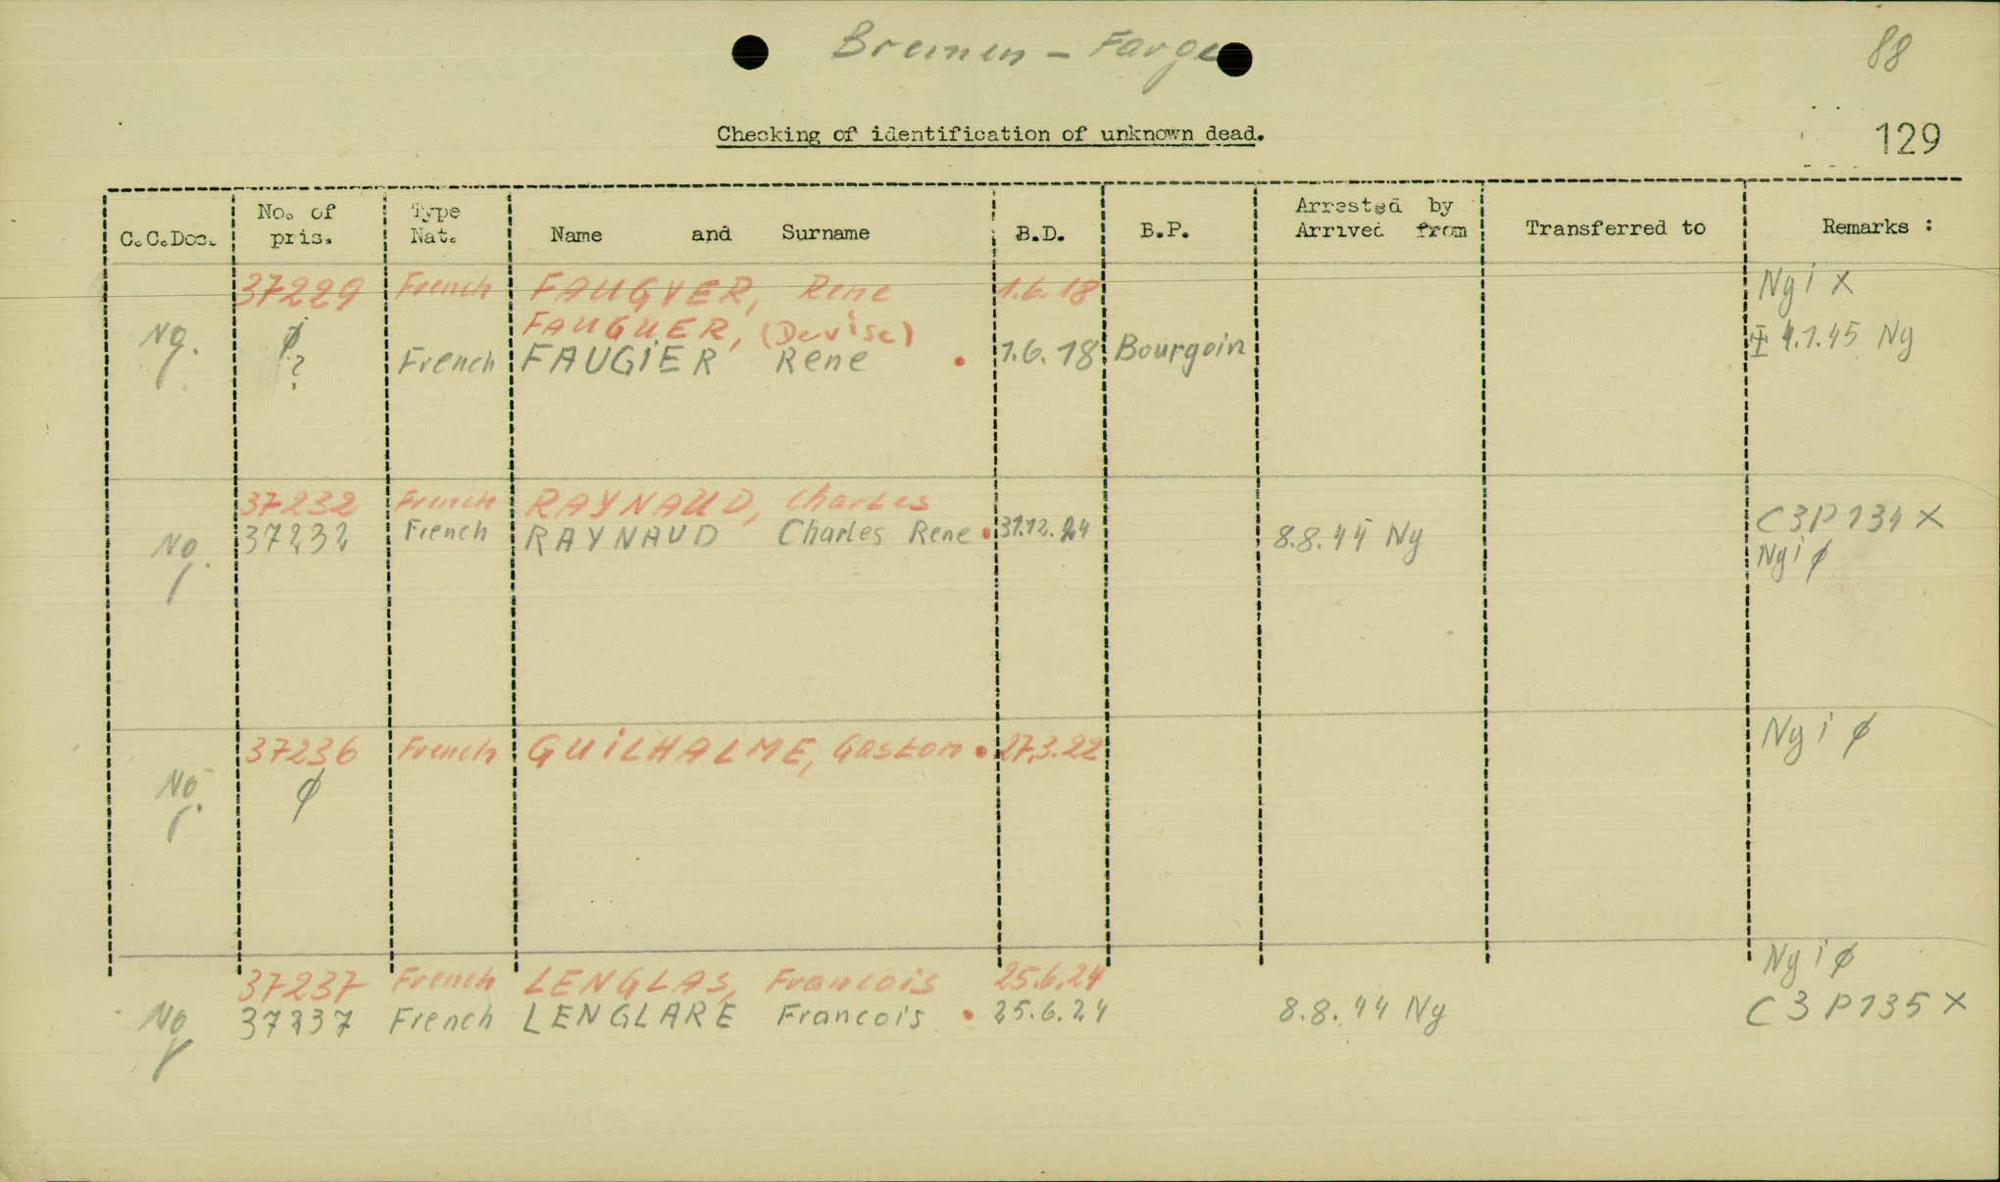 Bremen - Farge
88
Checking of identification of unknown dead.
129
C.C.Doc. No. of pris. Type Nat. Name and Surname B.D. B.P. Arrested by Arrived from Transferred to Remarks :
37229 French FAUGVER, Rene 1.6.18 Ngi x
FAUGUER, (Devise)
Ng. ϕ ? French FAUGIER Rene . 1.6.18 Bourgoin 4.1.45 Ng
37232 French RAYNAUD, Charles C3P134 X
Ng. 37232 French RAYNAUD Charles Rene . 31.12.24 8.8.44 Ng Ngi ϕ
37236 French GUILHALME, Gaston . 27.3.22 Ngi ϕ
Ng. ϕ
37237 French LENGLAS, Francois 25.6.24 Ngi ϕ
Ng 37237 French LENGLARE Francois . 25.6.24 8.8.44 Ng C3P135 X